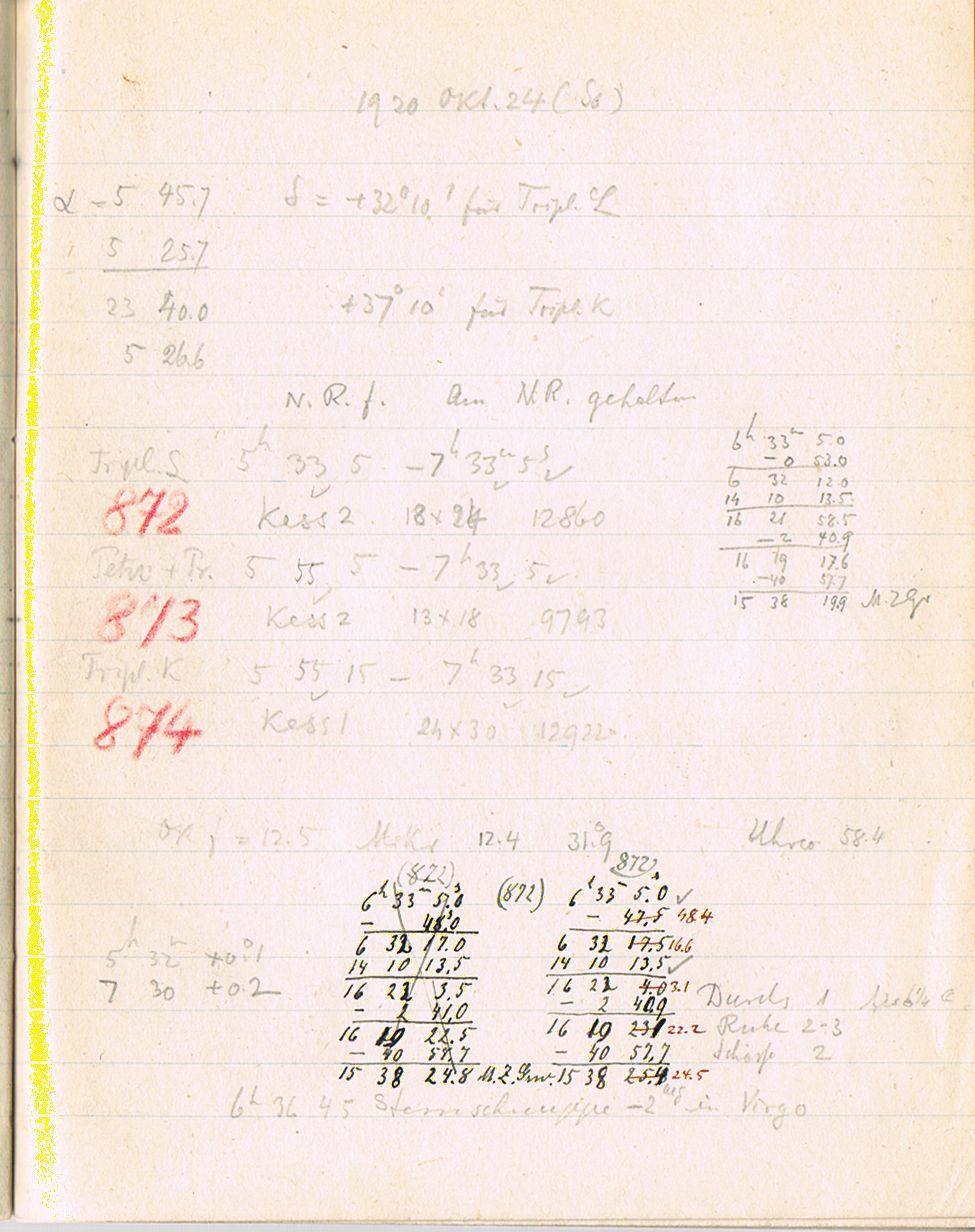 1920 Okt. 24 (So)
α = 5 45.7 δ = +32° 10' für Tripl. L
5 25.7
23 40.0 +37° 10' für Tripl. K
5 26.6
N. R. f. Am N.R. gehalten
Tripl. L 5h 33 5 – 7h 33m 5s
872 Kass 2 18 x 24 12860
Petz + Pr. 5 55 5 – 7h 33 5
873 Kass 2 13 x 18 9793
Tripl. K 5 55 15 – 7h 33 15
874 Kass 1 24 x 30 12922
6h 33m 5.0
– 0 53.0
6 32 12.0
14 10 13.5
16 21 58.5
– 2 40.9
16 19 17.6
–40 57.7
15 38 19.9 M. Z Gr
= 12.5 12.4 31.9 58.4
(872)
6h 33m 5s.0
– 48.0
6 32 17.0
14 10 13.5
16 22 3.5
– 2 41.0
16 19 22.5
– 40 57.7
15 38 24.8 M. Z. Grw.
(872) 872
6h 33m 5.0
– 47.5 48.4
6 32 17.5 16.6
14 10 13.5
16 22 4.0 3.1
– 2 40.9
16 19 23.1 22.2
– 40 57.7
15 38 25.4 24.5
5h 32m +0.1
7 30 +0.2
Durchs 1
Ruhe 2-3
Schärfe 2
6h 36 45 Sternschnuppe –2 in Virgo